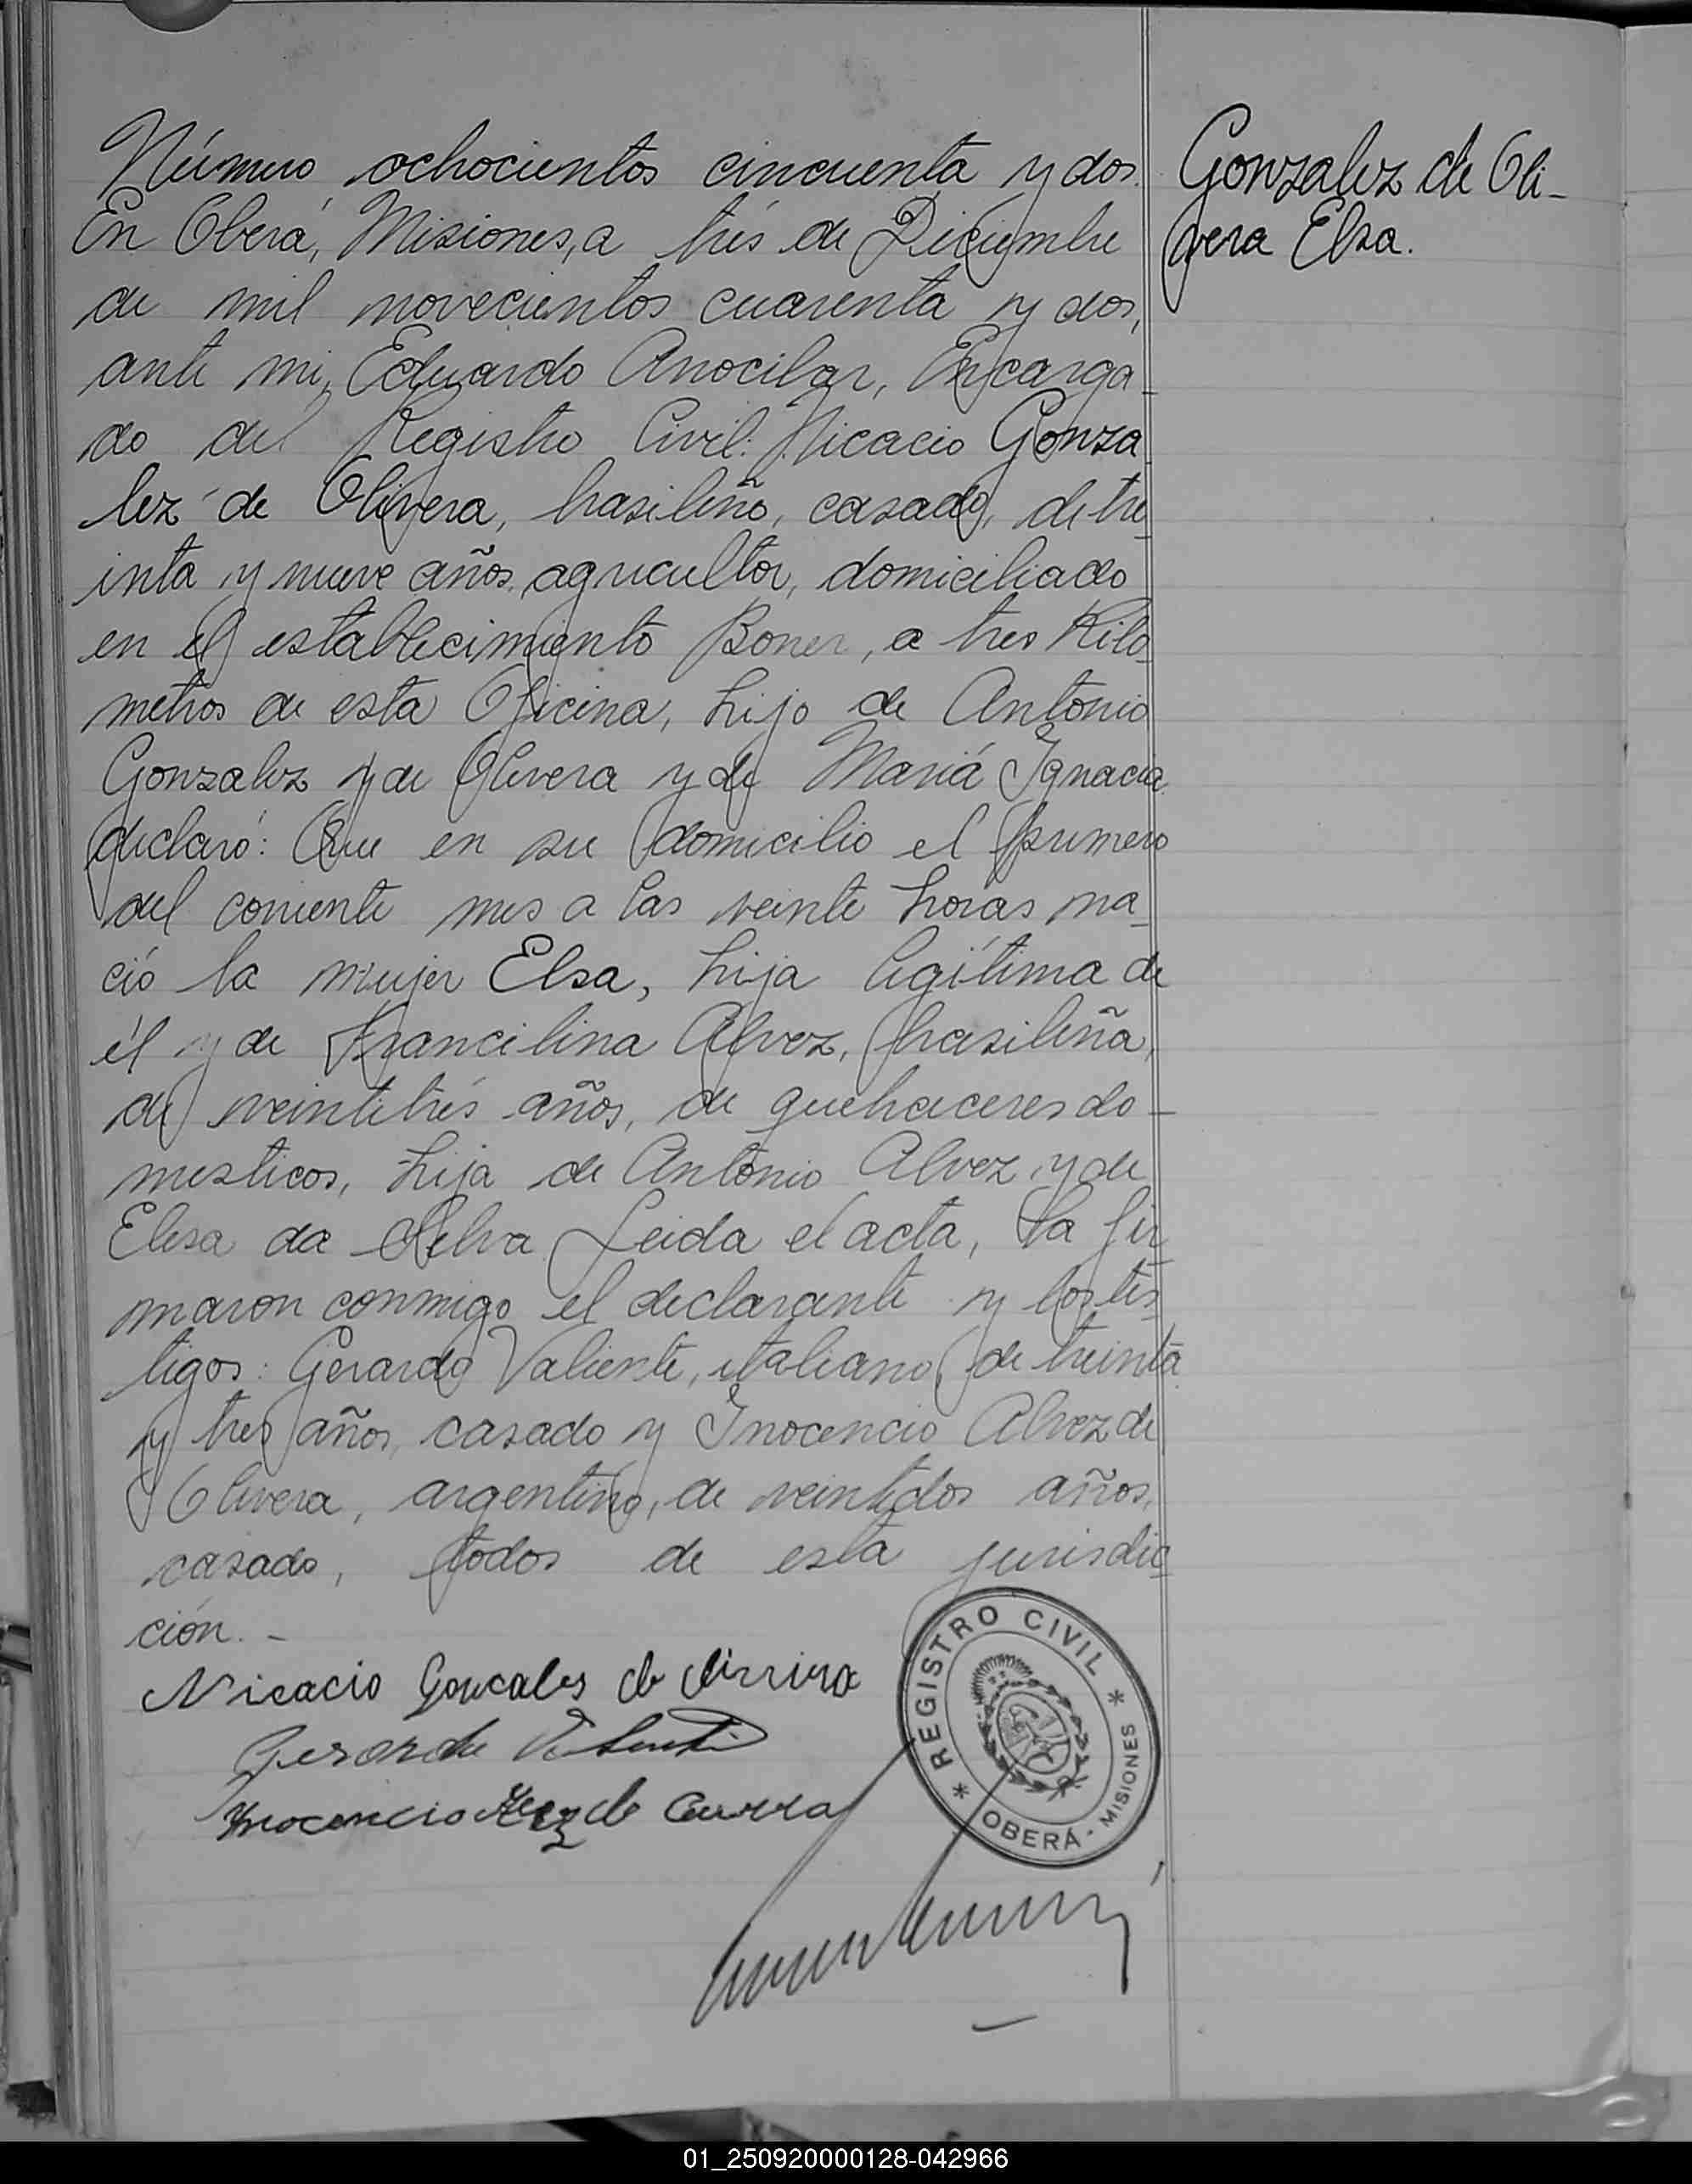 Número ochocientos cincuenta y dos.
En Oberá, Misiones, a trés de Diciembre
de mil novecientos cuarenta y dos,
ante mi, Eduardo Anocibar, Encarga-
do del Registro Civil: Nicacio Gonza
lez de Olivera, brasileño, casado, de tre-
inta y nueve años, agricultor, domiciliado
en el establecimiento Boner, a tres Kilo-
metros de esta Oficina, hijo de Antonio
Gonzalez y de Olivera y de María Ignacia
declaró: Que en su domicilio el primero
del corriente mes a las veinte horas na-
ció la mujer Elsa, hija legítima de
él y de Francilina Alvez, brasileña,
de veintitrés años, de quehaceres do-
mesticos, hija de Antonio Alvez y de
Elesa da Silva. Leida el acta, la fir-
maron conmigo el declarante y los tes-
tigos: Gerardo Valiente, italiano, de treinta
y tres años, casado y Inocencio Alvez de
Olivera, argentino, de veintidos años,
casado, todos de esta jurisdic-
ción. -
Nicacio Goncales de
Gerardo
Inocencio de
REGISTRO CIVIL
* OBERÁ - MISIONES *
Gonzalez de Oli-
vera Elsa.
01_250920000128-042966